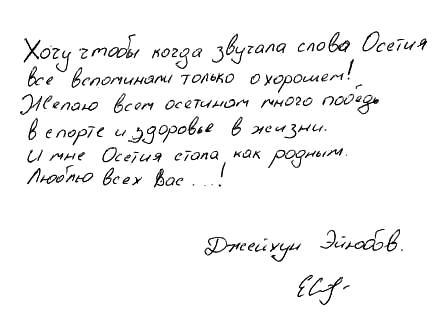 Хочу чтобы когда звучала слова Осетия
все вспоминали только о хорошем!
Желаю всем осетинам много победь
в спорте и здоровье в жизни.
И мне Осетия стала как родным.
Люблю всех Вас...!
Джейхун Эйюбов.